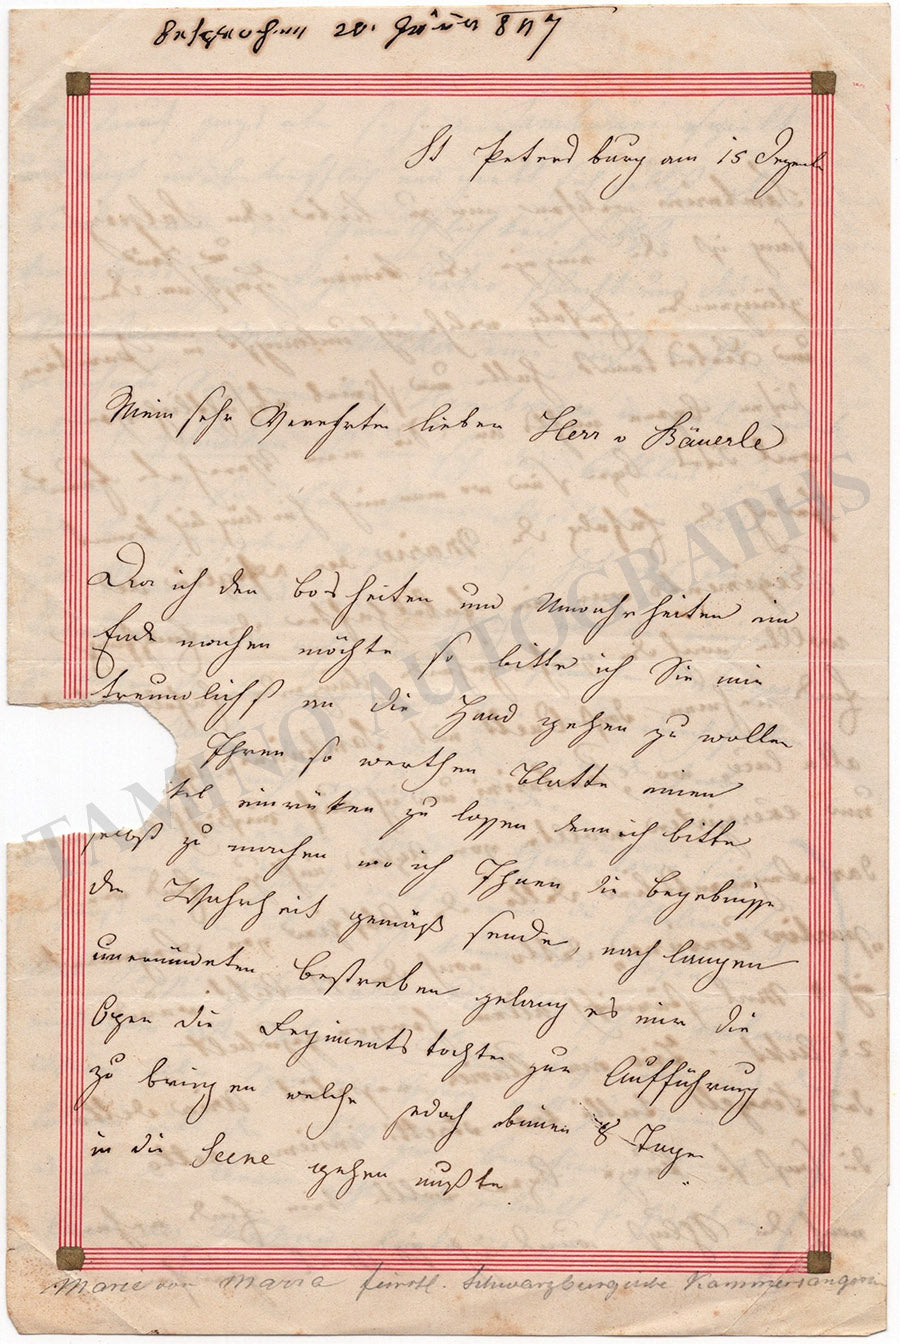 20. Jäner 847
St Petersburg am 15 Dezemb
Mein sehr Verehrter lieber Herr v Bäuerle
Da ich den Bosheiten und Unwahrheiten ein
Ende machen möchte so bitte ich Sie mir
freundlichst an die Hand gehen zu wollen
Ihren so werthen Blatte einen
ikel einrüken zu lassen denn ich bitte
selbst zu machen wo ich Ihnen die Begebnisse
der Wahrheit gemäß sende, nach langen
unermüdeten Bestreben gelang es mir die
Oper die Regiments tochter zur Aufführung
zu bringen welche jedoch binnen 8 Tagen
in die Scene gehen mußte
Marie von Marra fürstl. Schwarzburgische Kammersängerin
TAMINO AUTOGRAPHS